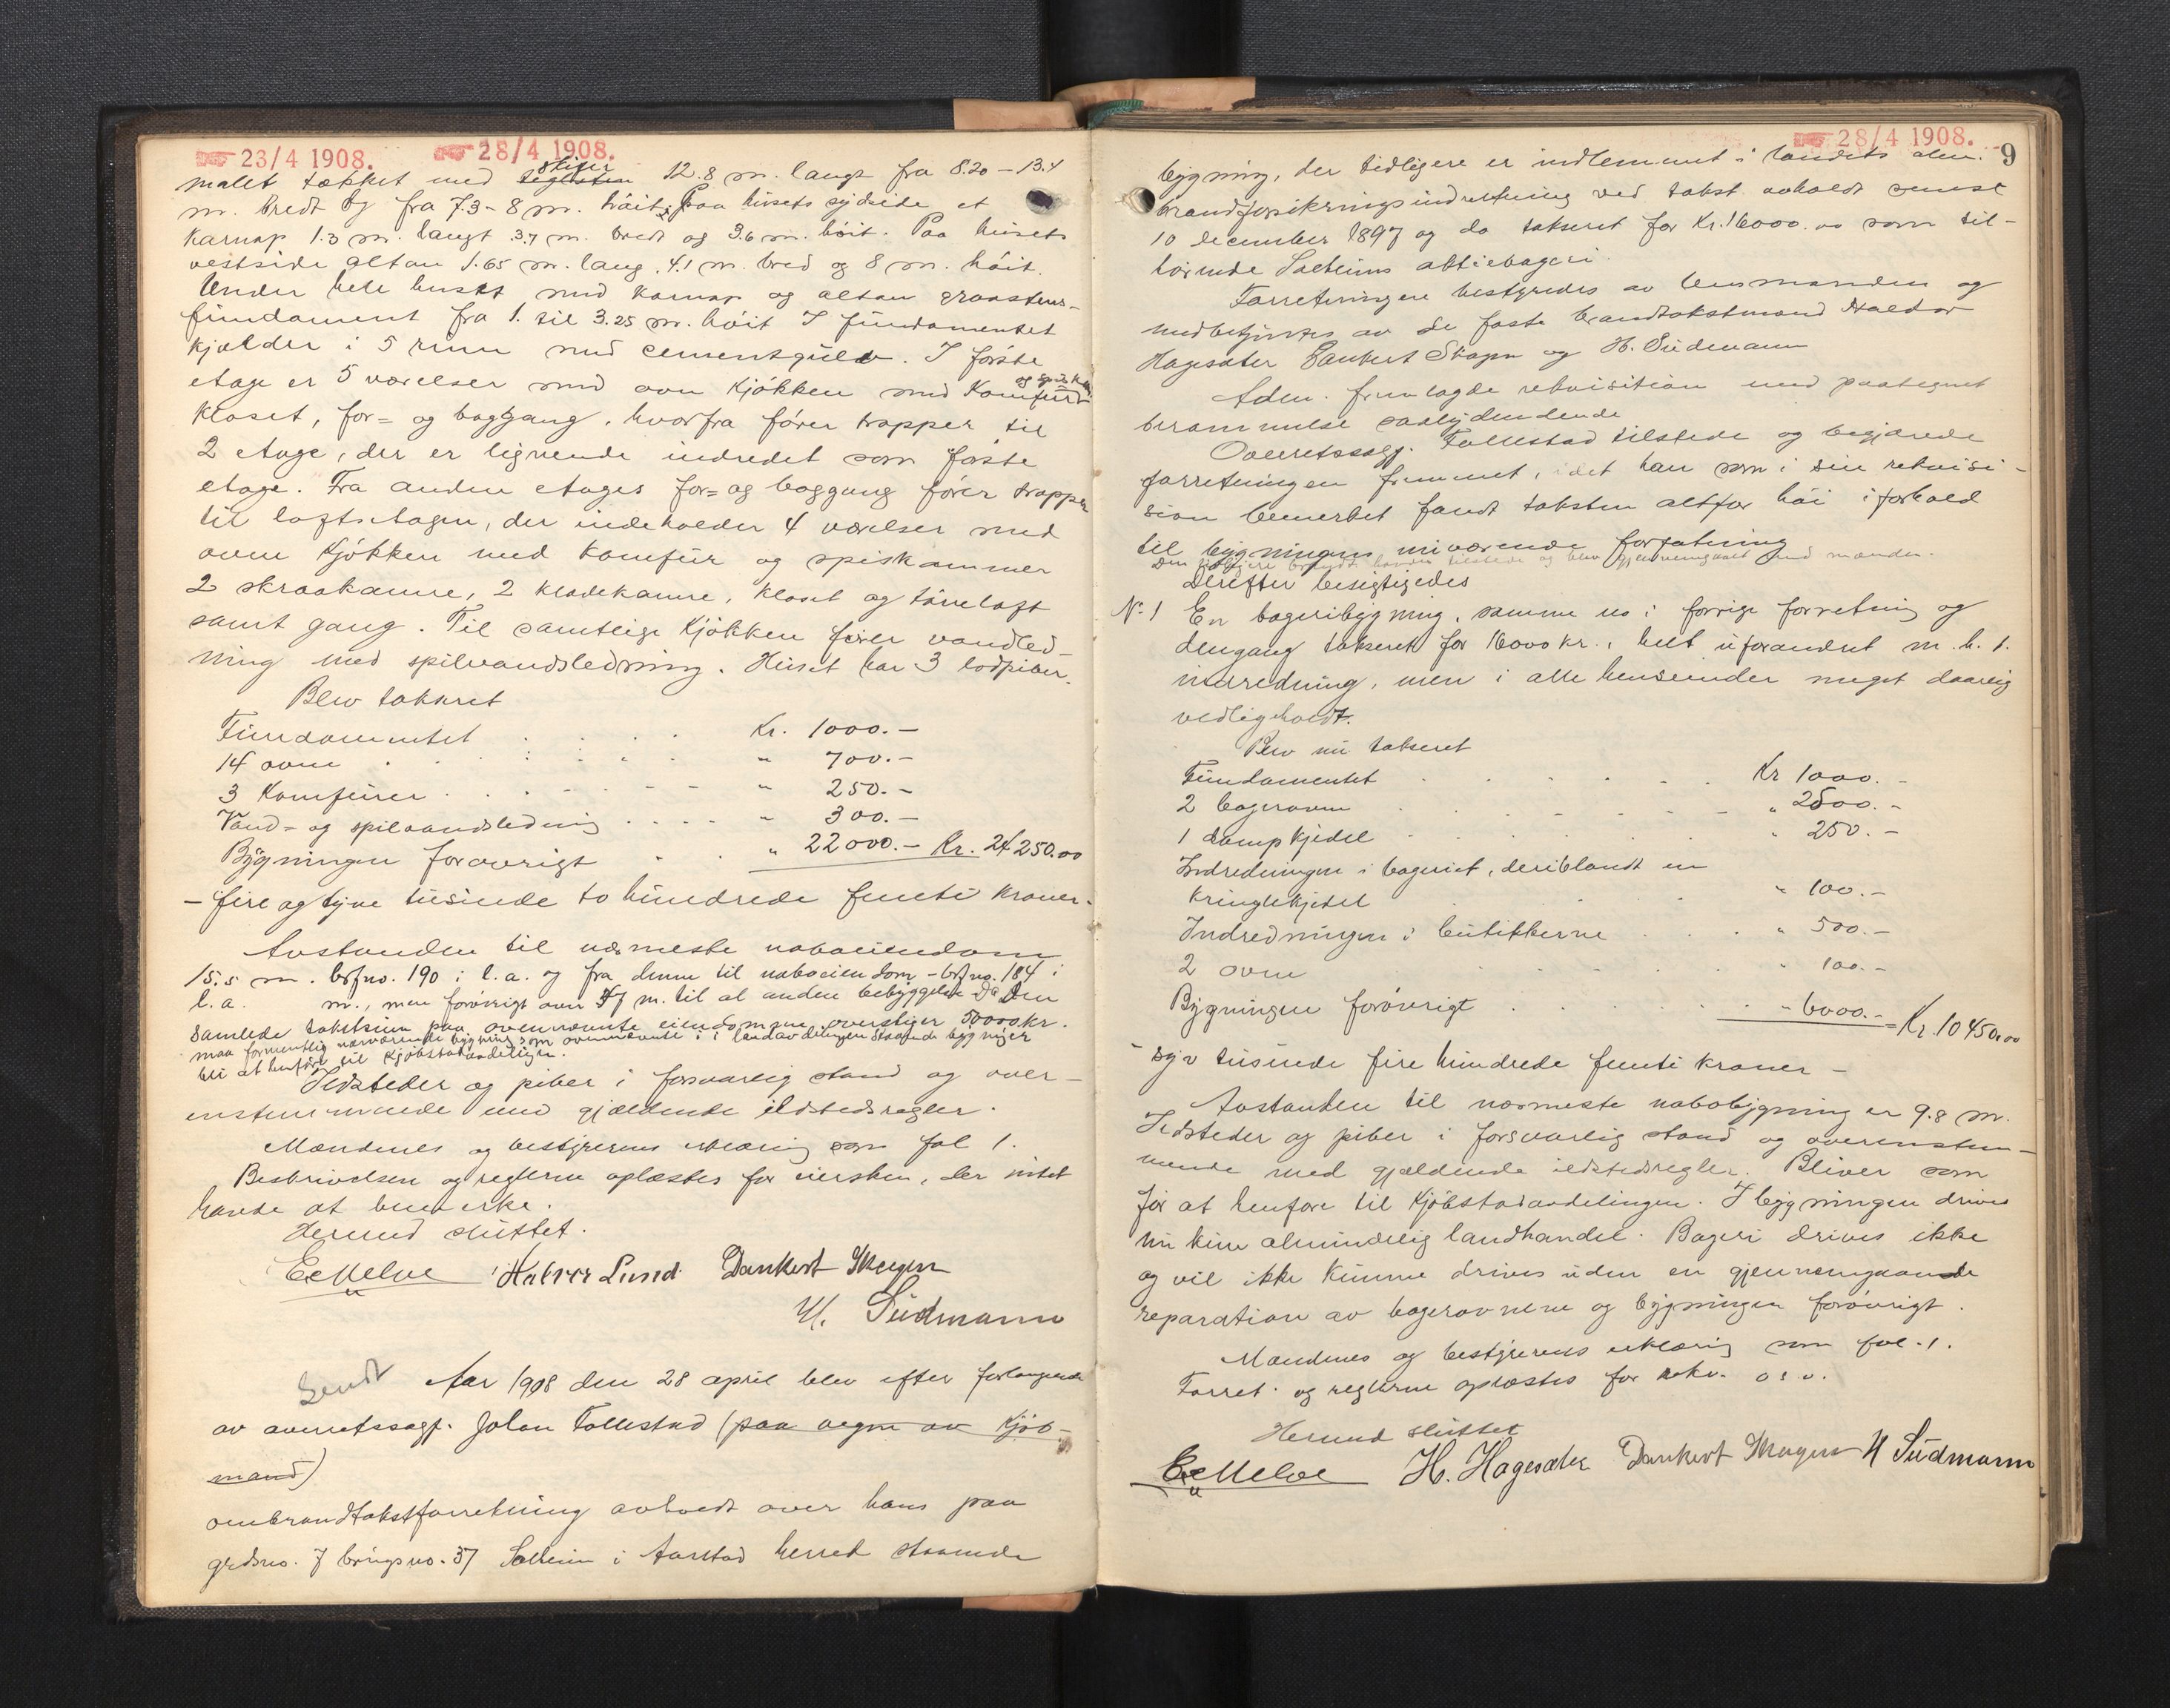 23/4 1908. 28/4 1908.
skifer
malet tækket med teglsten 12.8 m. langt fra 8.20 – 13.4
m. bredt og fra 7.3 – 8 m. höit. Paa husets sydside et
karnap 1.3 m. langt 3.7 m. bredt og 3.6 m. höit. Paa husets
vestside altan 1.65 m. lang, 4.1 m. bred og 8 m. höit.
Under hele huset med karnap og altan graastens-
fundament fra 1. til 3.25 m. höit I fundamentet
kjælder i 5 rum med cementgulv. I förste
og spisk.
etage er 5 værelser med ovn kjökken med komfur
kloset, for= og baggang, hvorfra förer trapper til
2 etage, der er lignende indredet som förste
etage. Fra anden etages for= og baggang förer trapper
til loftsetagen, der indeholder 4 værelser med
ovne kjökken med komfur og spiskammer
2 skraakamre, 2 klædekamre, kloset og törreloft
samt gang. Til samtlige kjökken förer vandled-
ning med spilvandsledning. Huset har 3 lodpiber.
Blev taksert
Fundamentet . . . . Kr. 1000.–
14 ovne . . . . . " 700.–
3 Komfurer . . . . . " 250.–
Vand- og spilvandsledning . . . . " 300.–
Bygningen forøvrigt . . " 22000.– Kr. 24250.00
– fire og tyve tusinde to hundrede femti kroner –
Avstanden til nærmeste naboeiendom
15.5 m. brfno. 190 i l.a. og fra denne til naboeiendom – brfno. 184 i
l.a. m., men forövrigt over m. til al anden bebyggelse Da den
samlede takstsum paa ovennævnte eiendomme overstiger 50000 kr.
maa formentlig nærværende bygning som ovennævnte i i landavdelingen staaende bygninger
bli at henföre til Kjöbstadavdelingen.
Ildsteder og piber i forsvarlig stand og over-
ensstemmende med gjældende ildstedsregler.
Mændenes og bestyrerens erklæring som fol 1.
Beskrivelsen og reglerne oplæstes for eiersken, der intet
havde at bemerke.
Hermed sluttet.
Halvor Lund Dankert Skagen
H. Südmann
Sendt Aar 1908 den 28 april blev efter forlangende
av overretssagf. Johan Follestad (paa vegne av Kjöb-
mand)
ombrandtakstforretning avholdt over hans paa
grdsno. 7 brugsno. 37 Solheim i Aarstad herred staaende
28/4 1908.
9
bygning, der tidligere er indlemmet i landets alm.
brandforsikringsindretning ved takst avholdt senest
10 december 1897 og da takseret for Kr. 16000.00 som til-
hörende Solheims aktiebageri.
Forretningen bestyredes av lensmanden og
medbetjentes av de faste brandtakstmænd Haldor
Hagesæter Dankert Skagen og H. Südmann
Adm. fremlagde rekvisition med paategnet
berammelse saalydendende
Overretssagf. Follestad tilstede og begjærede
forretningen fremmet, idet han som i sin rekvisi-
sion bemerket fandt taksten altfor höi i forhold
til bygningens nuværende forfatning
Derefter besigtigedes
No 1 En bageribygning, samme no i forrige forretning og
dengang takseret for 16000 kr., helt uforandret m. h. t.
indredning, men i alle henseender meget daarlig
vedligeholdt.
Blev nu takseret
Fundamentet . . . . . . Kr 1000.–
2 bagerovne . . . . . . " 2500.–
1 dampkjedel . . . . . " 250.–
Indredningen i bageriet, deriblandt en
kringlekjedel . . . . " 100.–
Indredningen i butikkerne . . . " 500.–
2 ovne . . . . . " 100.–
Bygningen forövrigt . . . . . " 6000.– = Kr. 10450.00
– syv tusinde fire hundrede femti kroner –
Avstanden til nærmeste nabobygning er 9.8 m.
Ildsteder og piber i forsvarlig stand og overenstem-
mende med gjældende ildstedsregler. Bliver som
för at henföre til Kjöbstadavdelingen. I bygningen drives
nu kun almindelig landhandel. Bageri drives ikke
og vil ikke kunne drives uden en gjennemgaaende
reparation av bagerovnene og bygningen forövrigt.
Mændenes og bestyrerens erklæring som fol. 1.
Forret. og reglerne oplæstes for rekv. o.s.v.
Hermed sluttet
H. Hagesæter Dankert Skagen H Südmann